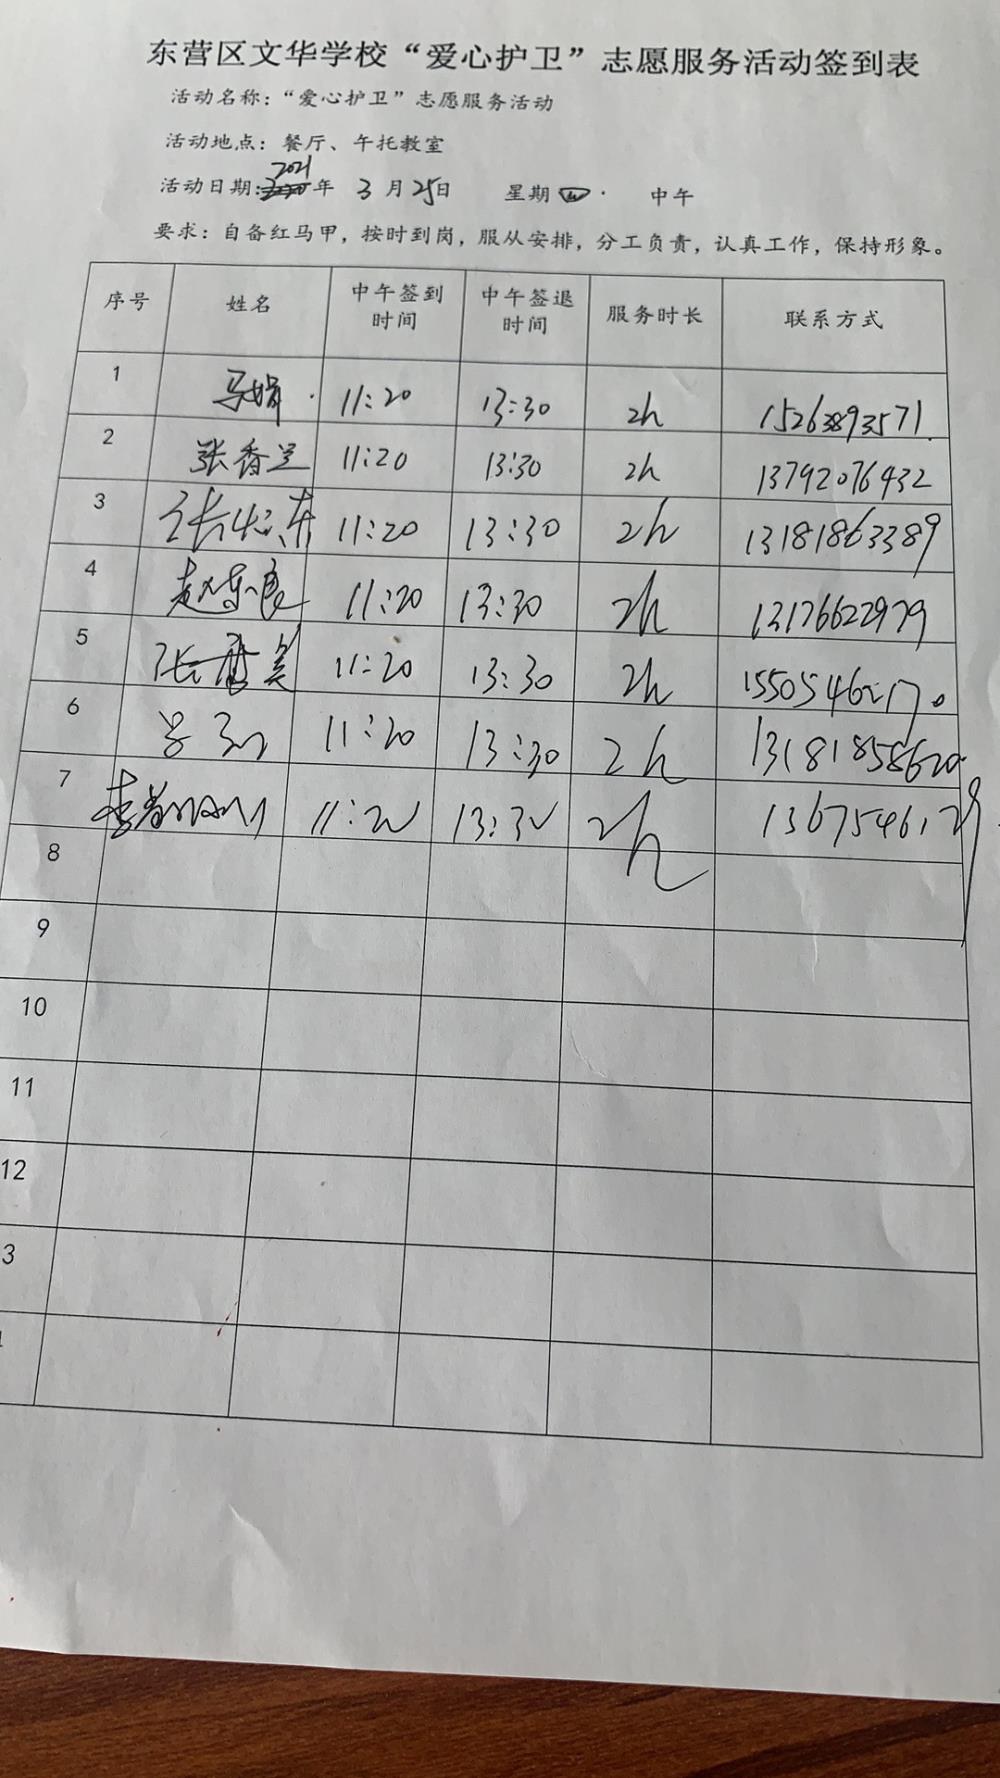 东营区文华学校“爱心护卫”志愿服务活动签到表
活动名称：“爱心护卫”志愿服务活动
活动地点：餐厅、午托教室
活动日期：2021年 3月25日 星期四 中午
要求：自备红马甲，按时到岗，服从安排，分工负责，认真工作，保持形象。
序号 姓名 中午签到时间 中午签退时间 服务时长 联系方式
1 马娟 11:20 13:30 2h 15263893571
2 张香兰 11:20 13:30 2h 13792076432
3 11:20 13:30 2h 13181863389
4 赵东良 11:20 13:30 2h 13176622979
5 11:20 13:30 2h 15505462170
6 11:20 13:30 2h 13181858620
7 11:20 13:30 2h
8
9
10
11
12
3